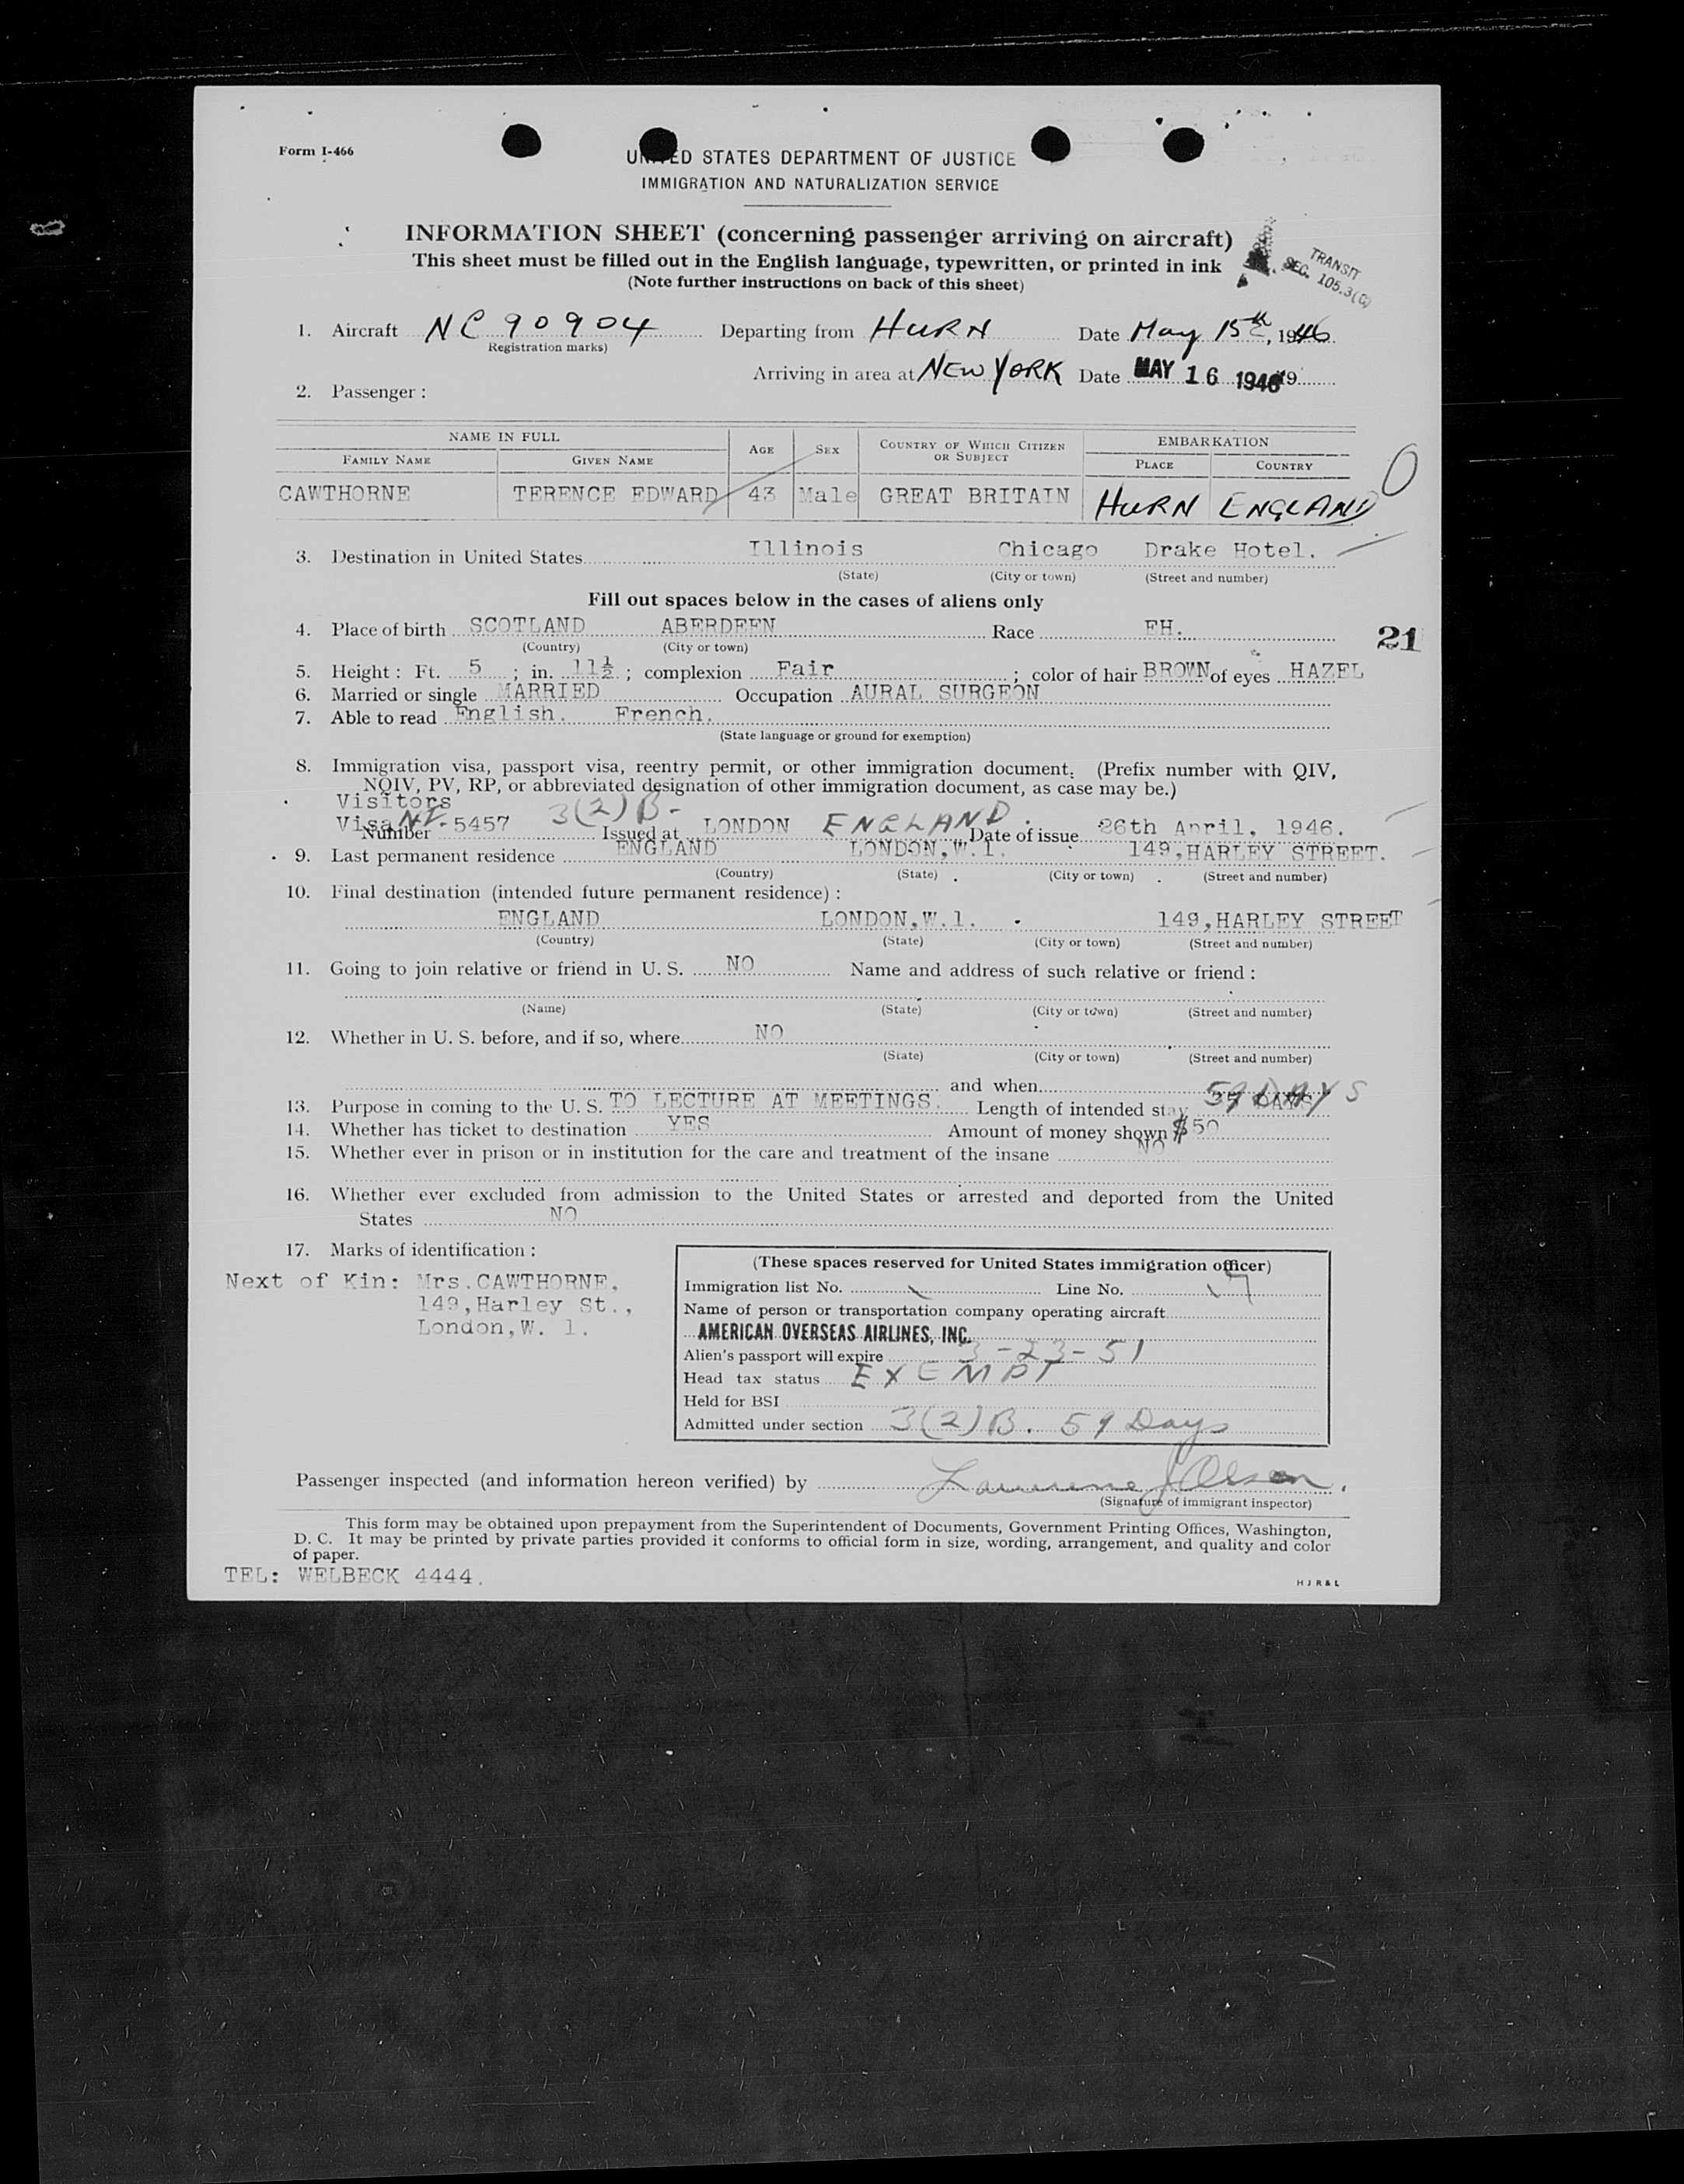 Form I-466
UNITED STATES DEPARTMENT OF JUSTICE
IMMIGRATION AND NATURALIZATION SERVICE
INFORMATION SHEET (concerning passenger arriving on aircraft)
This sheet must be filled out in the English language, typewritten, or printed in ink
(Note further instructions on back of this sheet)
TRANSIT
SEC. 105.3(C)
1. Aircraft NC90904 Departing from HURN Date May 15th, 1946
(Registration marks)
Arriving in area at NEW YORK Date MAY 16 1946 19
2. Passenger :
NAME IN FULL AGE SEX COUNTRY OF WHICH CITIZEN OR SUBJECT EMBARKATION
FAMILY NAME GIVEN NAME PLACE COUNTRY
CAWTHORNE TERENCE EDWARD 43 Male GREAT BRITAIN HURN ENGLAND
3. Destination in United States Illinois Chicago Drake Hotel.
(State) (City or town) (Street and number)
Fill out spaces below in the cases of aliens only
4. Place of birth SCOTLAND ABERDEEN Race EH.
21
(Country) (City or town)
5. Height : Ft. 5 ; in. 11½ ; complexion Fair ; color of hair BROWN of eyes HAZEL
6. Married or single MARRIED Occupation AURAL SURGEON
7. Able to read English. French.
(State language or ground for exemption)
8. Immigration visa, passport visa, reentry permit, or other immigration document. (Prefix number with QIV,
NQIV, PV, RP, or abbreviated designation of other immigration document, as case may be.)
Visitors
Visa NI-5457 3(2)B- LONDON ENGLAND. 26th April, 1946.
Number Issued at Date of issue
9. Last permanent residence ENGLAND LONDON,W.1. 149,HARLEY STREET.
(Country) (State) (City or town) (Street and number)
10. Final destination (intended future permanent residence) :
ENGLAND LONDON,W.1. 149,HARLEY STREET
(Country) (State) (City or town) (Street and number)
11. Going to join relative or friend in U. S. NO Name and address of such relative or friend :
(Name) (State) (City or town) (Street and number)
12. Whether in U. S. before, and if so, where NO
(State) (City or town) (Street and number)
and when
13. Purpose in coming to the U. S. TO LECTURE AT MEETINGS. Length of intended stay 59 DAYS
14. Whether has ticket to destination YES Amount of money shown $50
15. Whether ever in prison or in institution for the care and treatment of the insane NO
16. Whether ever excluded from admission to the United States or arrested and deported from the United
States NO
17. Marks of identification :
Next of Kin: Mrs.CAWTHORNE,
149,Harley St.,
London,W. 1.
(These spaces reserved for United States immigration officer)
Immigration list No. Line No.
Name of person or transportation company operating aircraft
AMERICAN OVERSEAS AIRLINES, INC.
Alien's passport will expire 3-23-51
Head tax status EXEMPT
Held for BSI
Admitted under section 3(2)B. 59 Days
Passenger inspected (and information hereon verified) by Lawrence J Olsen.
(Signature of immigrant inspector)
This form may be obtained upon prepayment from the Superintendent of Documents, Government Printing Offices, Washington,
D. C. It may be printed by private parties provided it conforms to official form in size, wording, arrangement, and quality and color
of paper.
TEL: WELBECK 4444.
H J R & L